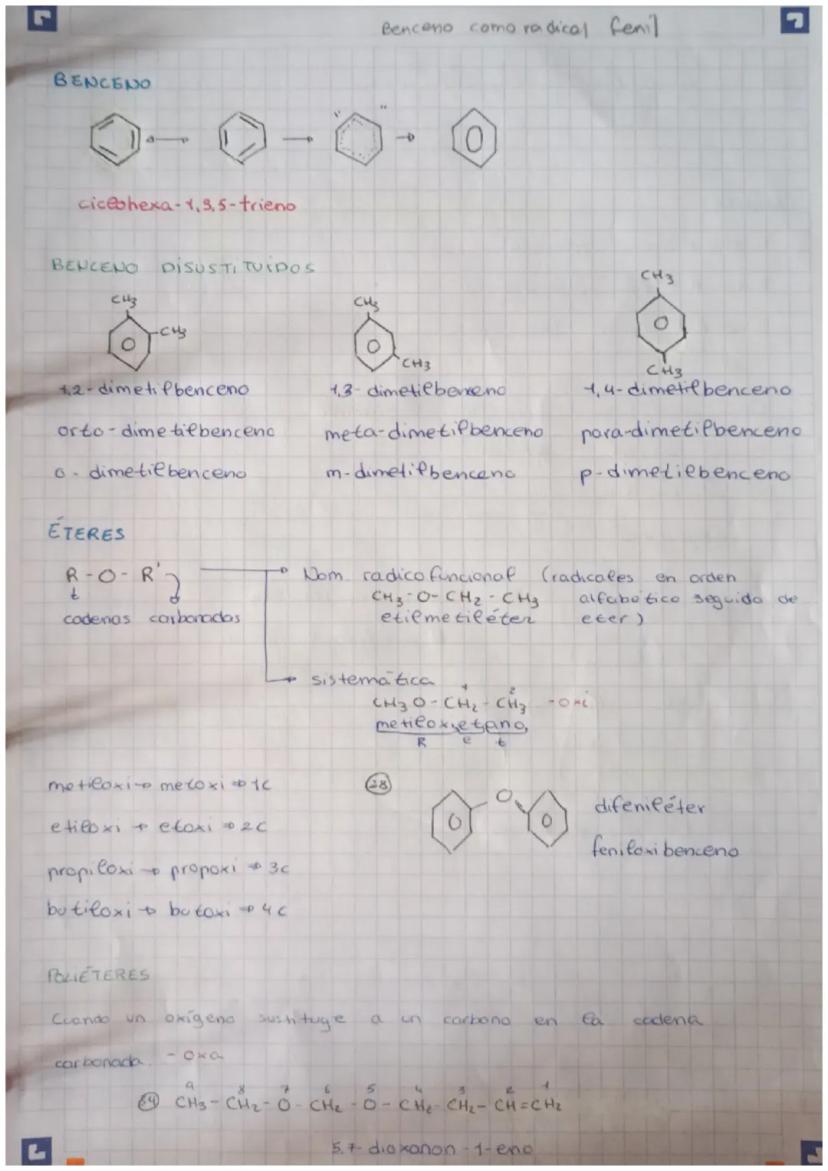 Benceno como radical fenil
BENCENO
ciclohexa-1,3,5-trieno
BENCENO DISUSTITUIDOS
CH3 CH3 CH3
CH3 CH3 CH3
1,2-dimetilbenceno 1,3-dimetilbenceno 1,4-dimetilbenceno
orto-dimetilbenceno meta-dimetilbenceno para-dimetilbenceno
o-dimetilbenceno m-dimetilbenceno p-dimetilbenceno
ÉTERES
R-O-R' Nom radicofuncional (radicales en orden
CH3-O-CH2-CH3 alfabético seguido de
cadenas carbonadas etilmetiléter eter)
sistemática
1 2
CH3O-CH2-CH3 -oxi
metiloxietano
R e t
metiloxi → metoxi ⇒ 1c 28 O
etiloxi → etoxi ⇒ 2c difeniléter
propiloxi → propoxi ⇒ 3c feniloxibenceno
butiloxi → butoxi ⇒ 4c
POLIÉTERES
Cuando un oxígeno sustituye a un carbono en la cadena
carbonada. -oxa
9 8 7 6 5 4 3 2 1
CH3-CH2-O-CH2-O-CH2-CH2-CH=CH2
5,7-dioxanon-1-eno